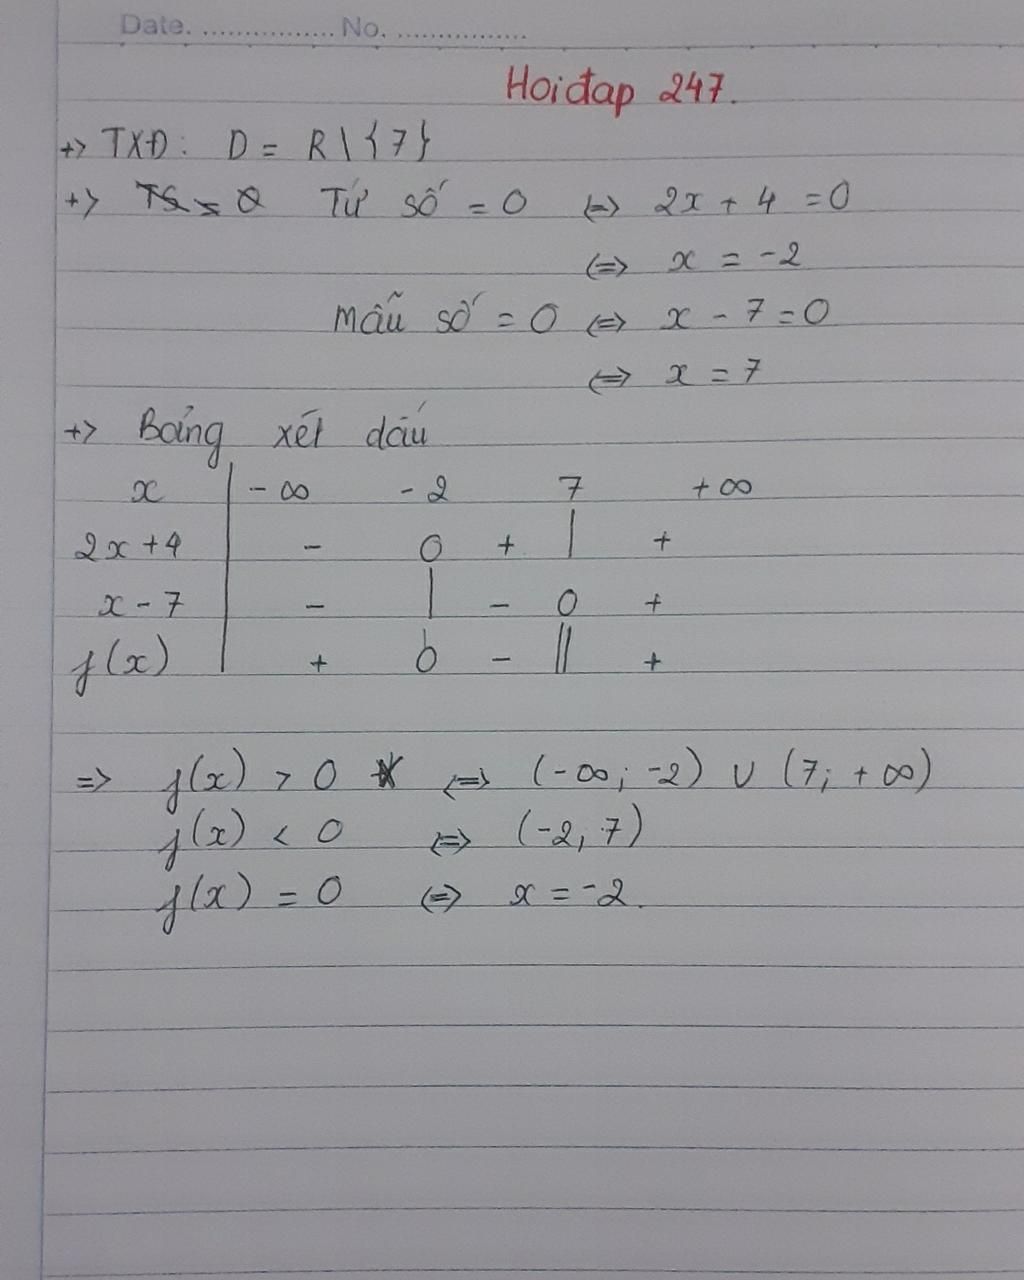 Date. ................ No. ................
Hoiđap 247.
+> TXĐ: D = R \ {7}
+> Tử số = 0 <=> 2x + 4 = 0
<=> x = -2
Mẫu số = 0 <=> x - 7 = 0
<=> x = 7
+> Bảng xét dấu
x | -∞ -2 7 +∞
2x+4 | - 0 + | +
x-7 | - | - 0 +
f(x) | + 0 - || +
=> f(x) > 0 <=> (-∞; -2) ∪ (7; +∞)
f(x) < 0 <=> (-2; 7)
f(x) = 0 <=> x = -2.